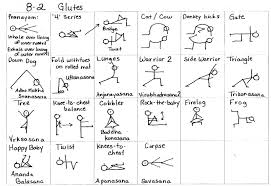 8-2 Glutes
Pranayam:
'4' Series
Cat/Cow
Donkey kicks
Gate
Inhale over lining
of outer nostril
Exhale over lining
of outer nostril
Bridge
Twist
Down Dog
Fold with toes
on rolled mat
Lunges
Warrior 2
Side Warrior
Triangle
Adho Mukha
Svanasana
Uttanasana
Anjanayasana
Virabhadrasana
Trikonasana
Tree
Knee-to-chest
balance
Cobbler
Rock-the-baby
Firelog
Frog
Vrksasana
Baddha
konasana
Happy Baby
Twist
Knees-to-
chest
Corpse
Ananda
Balasana
Apanasana
Savasana